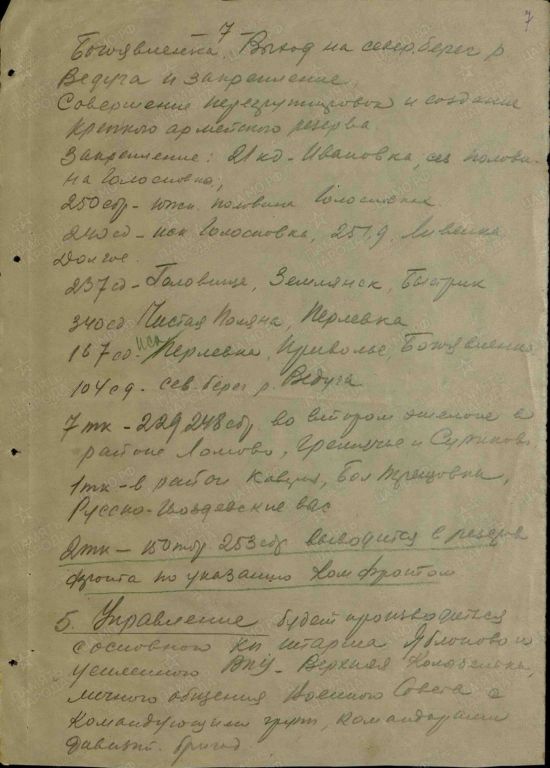 7
7
Богоявленка. Выход на север. берег р
Ведуга и закрепление.
Совершение перегруппировок и создание
крепкого армейского резерва
Закрепление: 21 кд - Ивановка, сев полови-
на Голосновка,
250 сбр - южн. половина Голосновка
240 сд - иск Голосновка, 251,9, Ливенка
Долгое.
237 сд - Головище, Землянск, Быстрик
340 сд Чистая Поляна, Перлевка
167 сд иск Перлевка, Приволье, Богоявленка
104 сд. - сев. берег р. Ведуга
7 тк - 229 248 сбр во втором эшелоне в
районе Ломово, Гремячье и Суриково
1 тк - в район Каверья, Бол Трещовка,
Русско-Гвоздевские выс
2 тк - 150 тбр 253 сбр выводится в резерв
фронта по указанию Комфронтом
5. Управление будет производиться
с основного КП штарма Яблоново и
усиленного ВПУ - Верхняя Колабелька,
личного общения Военного Совета с
Командующими групп, командирами
дивизий. бригад